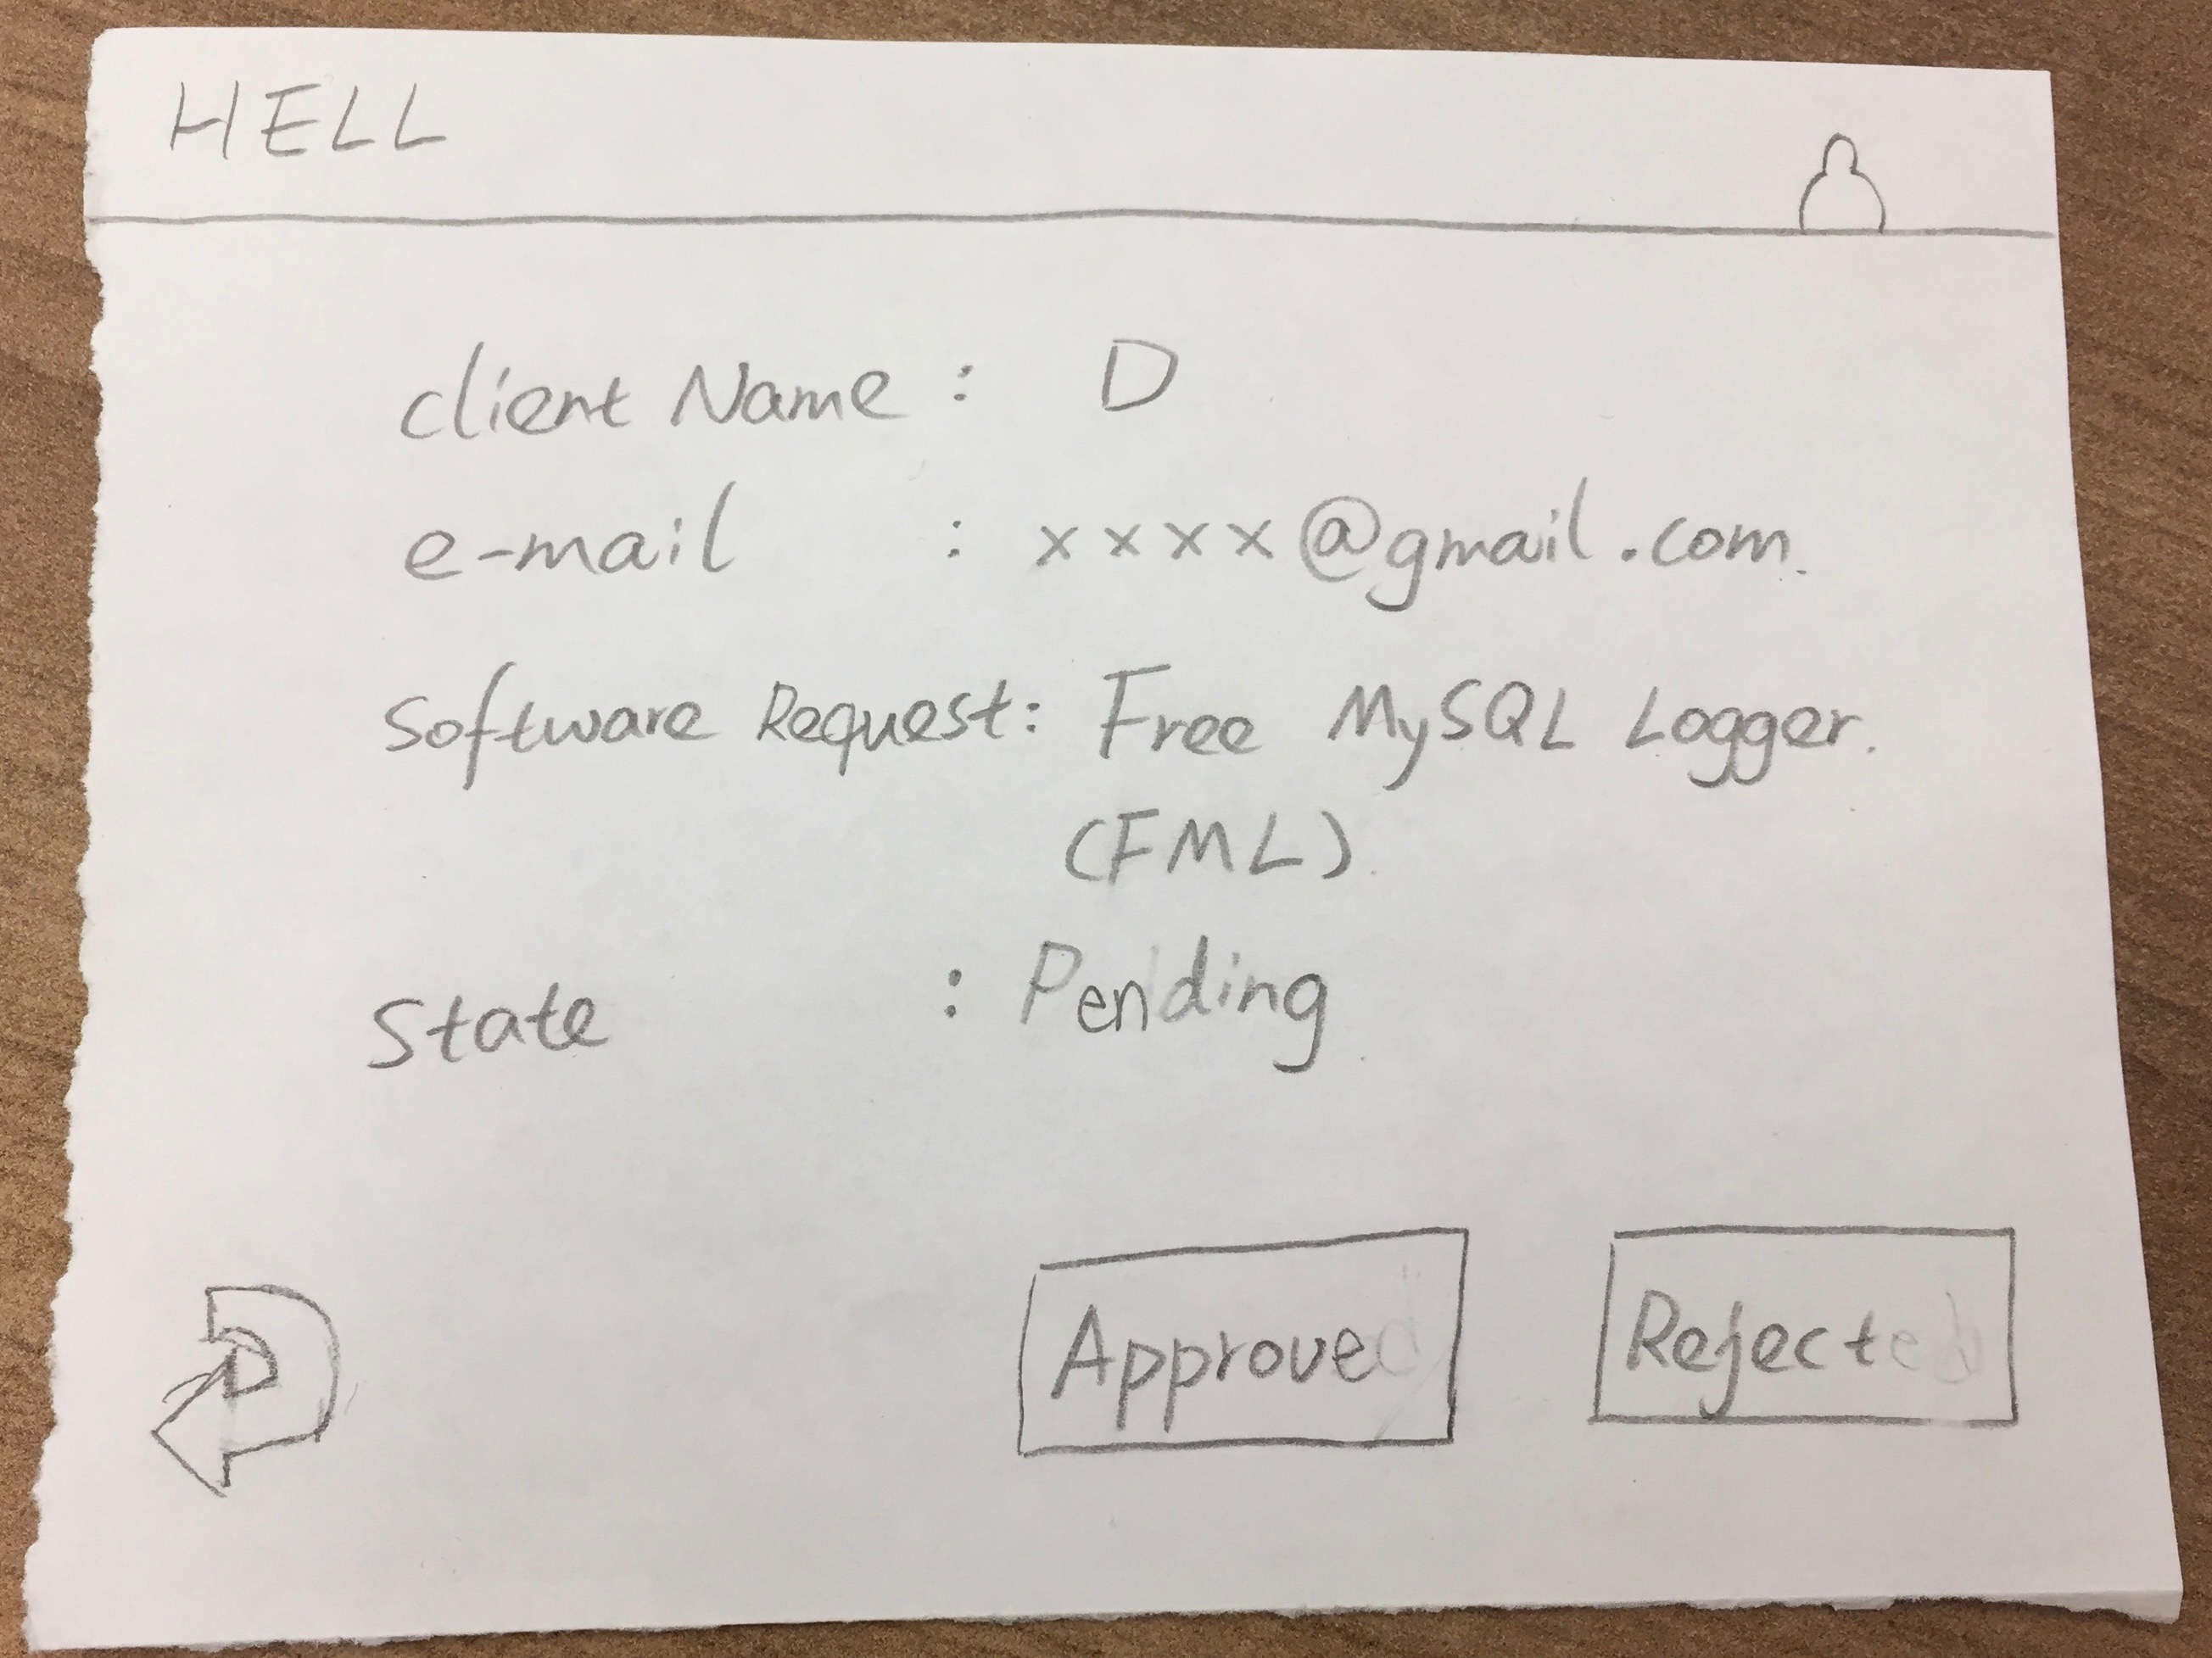 HELL
Client Name : D
e-mail : xxxx@gmail.com.
Software Request: Free MySQL Logger.
(FML).
State : Pending
Approve Reject